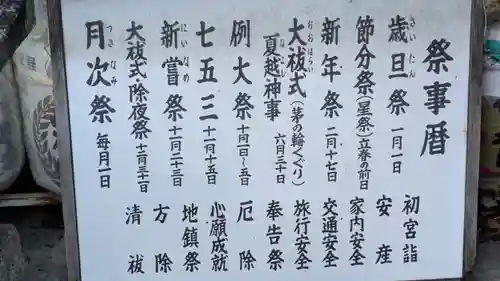 祭事暦
歳旦祭 一月一日
さいたん
節分祭(星祭)立春の前日
新年祭 二月十七日
大祓式(茅の輪くぐり)
おおはらい
夏越神事 六月三十日
なごし
例大祭 十月一日〜五日
七五三 十一月十五日
新嘗祭 十一月二十三日
にいなめ
大祓式・除夜祭 十二月三十一日
月次祭 毎月一日
つきなみ
初宮詣
安産
家内安全
交通安全
旅行安全
奉告祭
厄除
心願成就
地鎮祭
方除
清祓